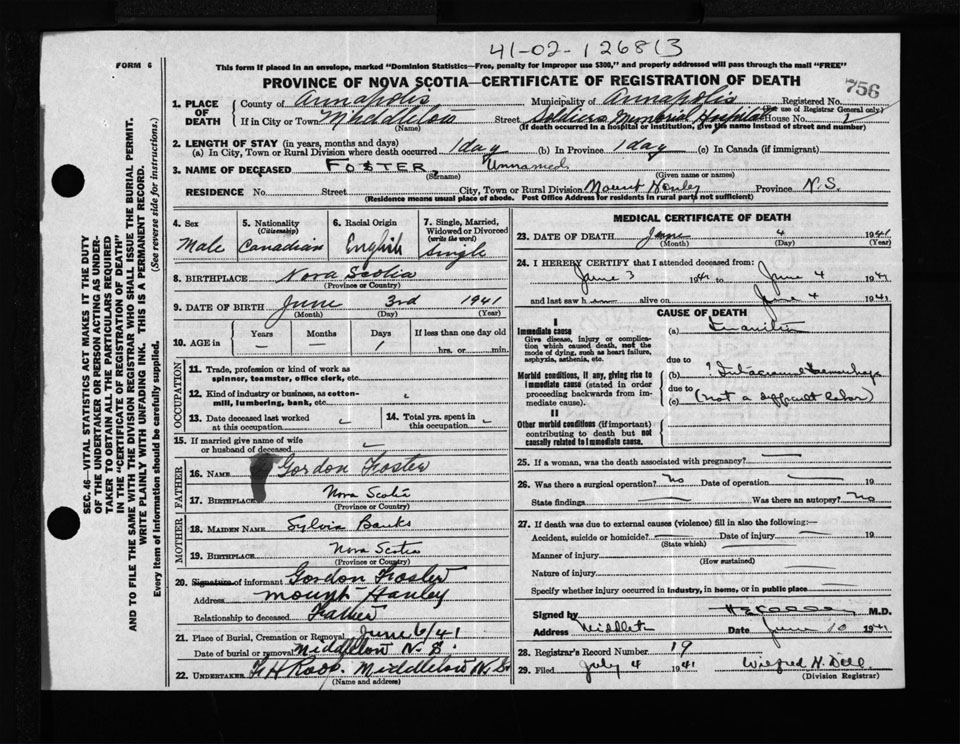 41-02-126813
FORM 6
This form if placed in an envelope, marked "Dominion Statistics—Free, penalty for improper use $300," and properly addressed will pass through the mail "FREE"
PROVINCE OF NOVA SCOTIA—CERTIFICATE OF REGISTRATION OF DEATH
756
1. PLACE OF DEATH
County of Annapolis Municipality of Annapolis Registered No.
(For use of Registrar General only)
If in City or Town Middleton Street Soldiers Memorial Hospital House No.
(Name) (If death occurred in a hospital or institution, give the name instead of street and number)
2. LENGTH OF STAY (in years, months and days)
(a) In City, Town or Rural Division where death occurred 1 day (b) In Province 1 day (c) In Canada (if immigrant)
3. NAME OF DECEASED FOSTER, Unnamed
(Surname) (Given name or names)
RESIDENCE No. Street City, Town or Rural Division Mount Hanley Province N.S.
(Residence means usual place of abode. Post Office Address for residents in rural parts not sufficient)
4. Sex Male
5. Nationality (Citizenship) Canadian
6. Racial Origin English
7. Single, Married, Widowed or Divorced (write the word) Single
8. BIRTHPLACE Nova Scotia
(Province or Country)
9. DATE OF BIRTH June 3rd 1941
(Month) (Day) (Year)
10. AGE in Years — Months — Days 1 If less than one day old hrs. or min.
OCCUPATION
11. Trade, profession or kind of work as spinner, teamster, office clerk, etc.
12. Kind of industry or business, as cotton-mill, lumbering, bank, etc.
13. Date deceased last worked at this occupation
14. Total yrs. spent in this occupation
15. If married give name of wife or husband of deceased
FATHER
16. NAME Gordon Foster
17. BIRTHPLACE Nova Scotia
(Province or Country)
MOTHER
18. MAIDEN NAME Sylvia Banks
19. BIRTHPLACE Nova Scotia
(Province or Country)
20. Signature of informant Gordon Foster
Address Mount Hanley
Relationship to deceased Father
21. Place of Burial, Cremation or Removal June 6/41
Date of burial or removal Middleton N.S.
22. UNDERTAKER F H Roop. Middleton N.S.
(Name and address)
MEDICAL CERTIFICATE OF DEATH
23. DATE OF DEATH June 4 1941
(Month) (Day) (Year)
24. I HEREBY CERTIFY that I attended deceased from:
June 3 1941 to June 4 1941
and last saw him alive on June 4 1941
CAUSE OF DEATH
I
Immediate cause (a) Inanition
Give disease, injury or complication which caused death, not the mode of dying, such as heart failure, asphyxia, asthenia, etc.
due to
Morbid conditions, if any, giving rise to immediate cause (stated in order proceeding backwards from immediate cause).
(b) ? Intracranial Hemorrhage
due to
(c) (not a difficult labor)
II
Other morbid conditions (if important) contributing to death but not causally related to immediate cause.
25. If a woman, was the death associated with pregnancy? —
26. Was there a surgical operation? No Date of operation — 19
State findings Was there an autopsy? No
27. If death was due to external causes (violence) fill in also the following:—
Accident, suicide or homicide? — Date of injury — 19
(State which)
Manner of injury
(How sustained)
Nature of injury
Specify whether injury occurred in industry, in home, or in public place
Signed by M.D.
Address Middleton Date June 10 1941
28. Registrar's Record Number 19
29. Filed July 4 1941 Wilfred H. Dell
(Division Registrar)
SEC. 46—VITAL STATISTICS ACT MAKES IT THE DUTY OF THE UNDERTAKER OR PERSON ACTING AS UNDERTAKER TO OBTAIN ALL THE PARTICULARS REQUIRED IN THE "CERTIFICATE OF REGISTRATION OF DEATH" AND TO FILE THE SAME WITH THE DIVISION REGISTRAR WHO SHALL ISSUE THE BURIAL PERMIT.
WRITE PLAINLY WITH UNFADING INK. THIS IS A PERMANENT RECORD.
Every item of information should be carefully supplied. (See reverse side for instructions.)